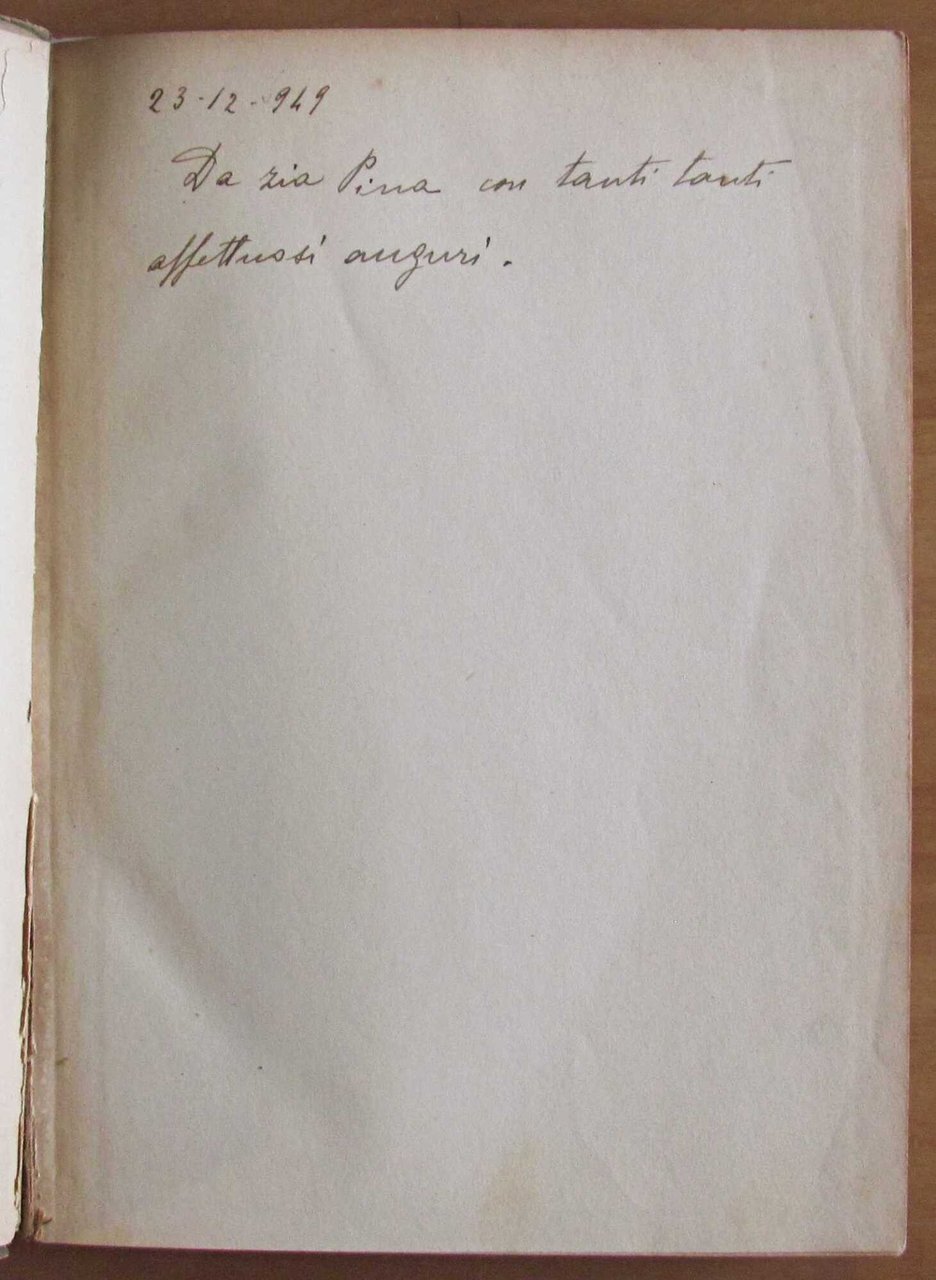 23-12-949
Da zia Pina con tanti tanti
affettuosi auguri.